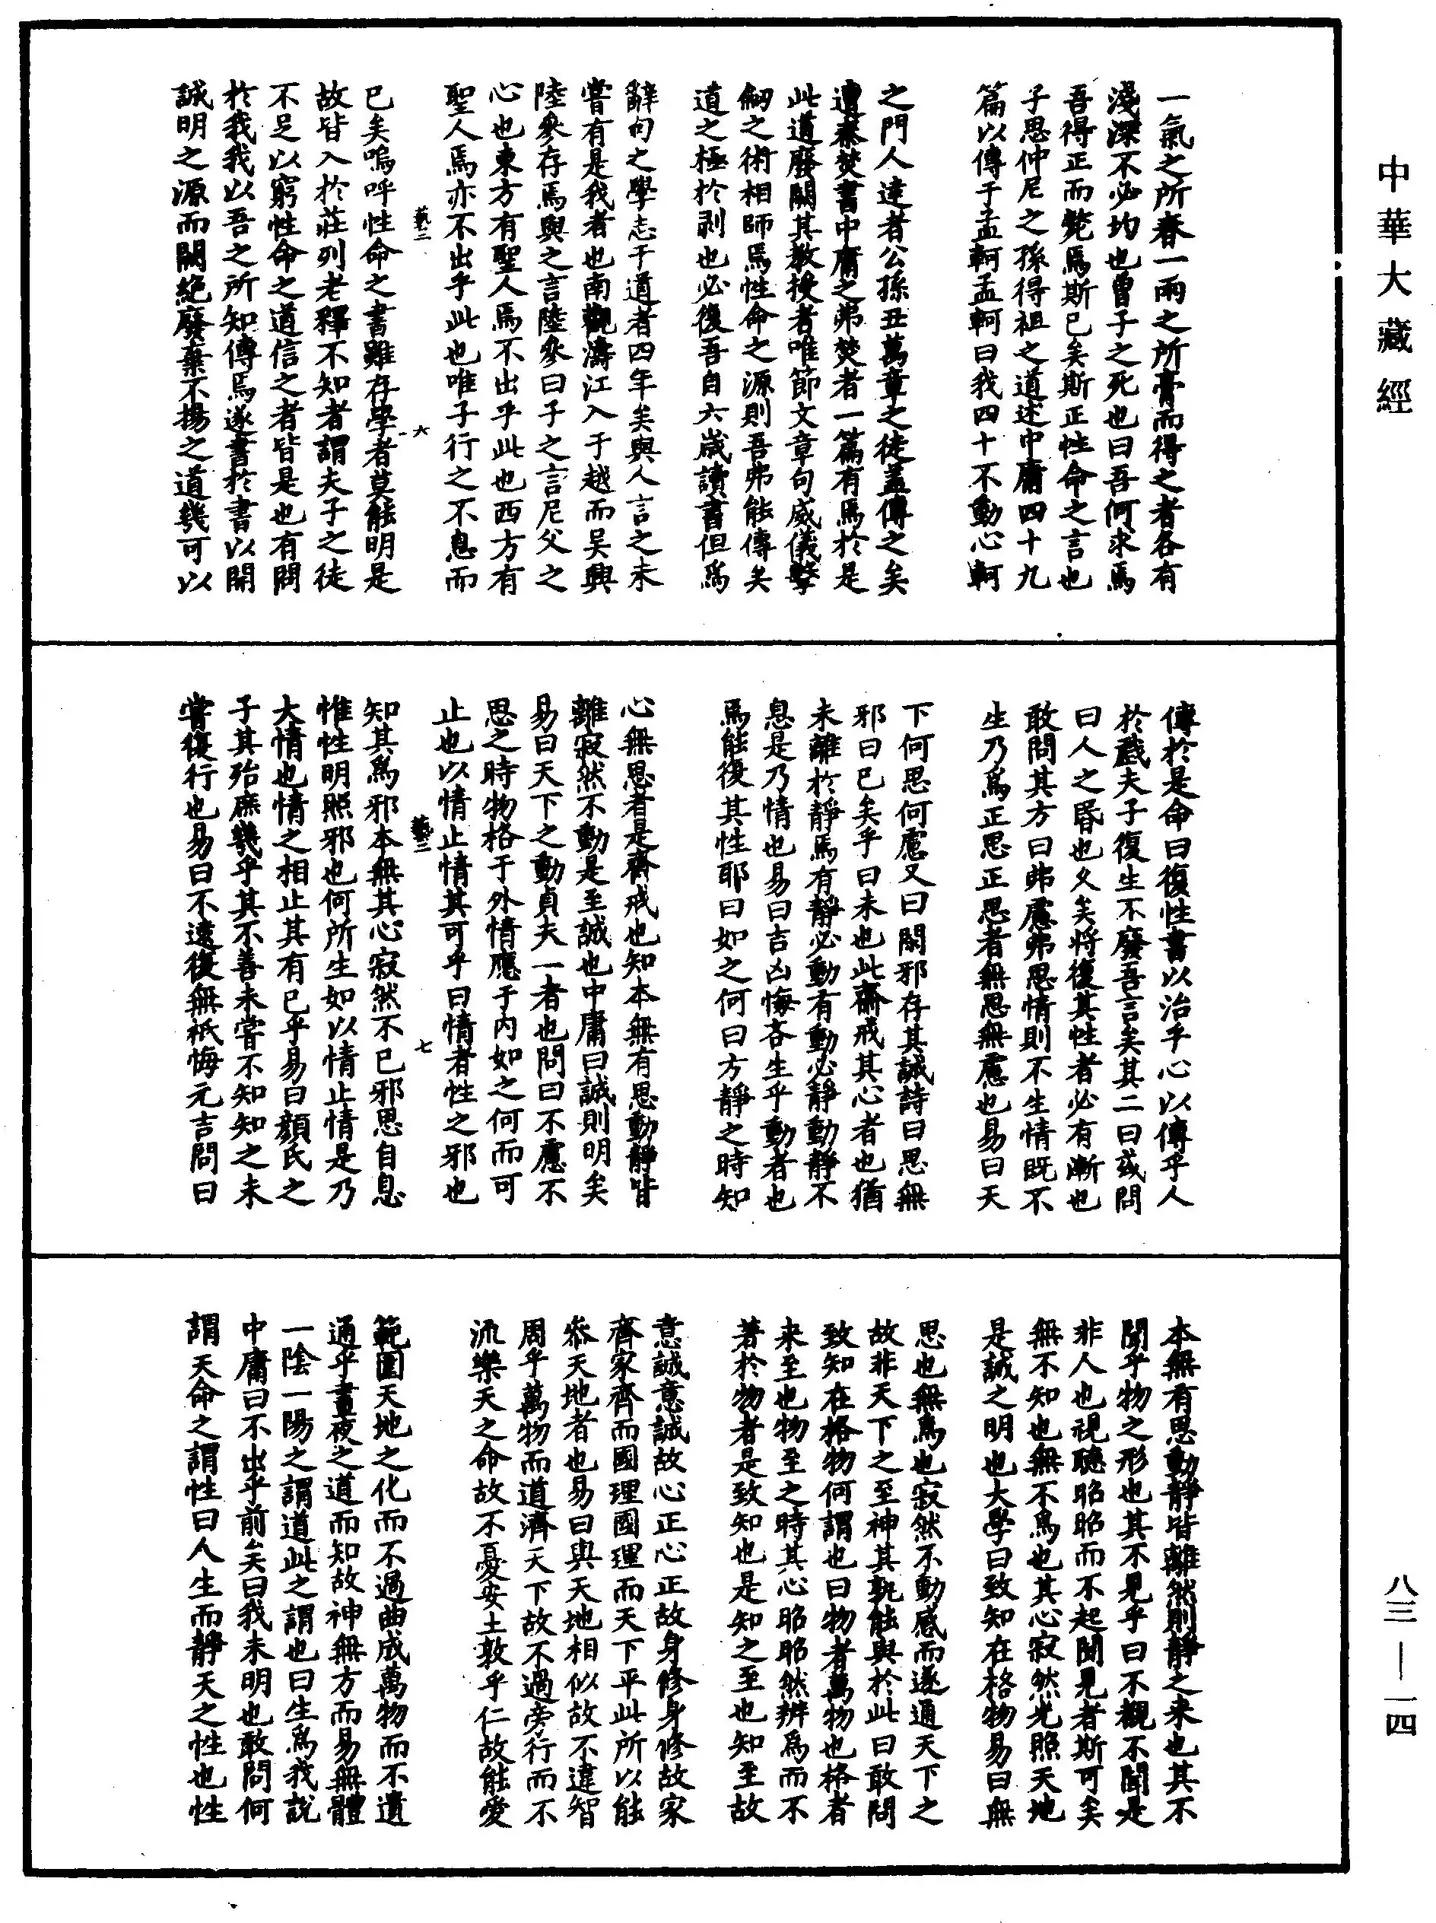 中華大藏經
一氣之所養一雨之所膏而得之者各有
淺深不必均也曾子之死也曰吾何求焉
吾得正而斃焉斯已矣斯正性命之言也
子思仲尼之孫得祖之道述中庸四十九
篇以傳于孟軻孟軻曰我四十不動心軻
之門人達者公孫丑萬章之徒蓋傳之矣
遭秦焚書中庸之弗焚者一篇有焉於是
此道廢闕其教授者唯節文章句威儀擊
劒之術相師焉性命之源則吾弗能傳矣
道之極於剥也必復吾自六歲讀書但爲
辭句之學志于道者四年矣與人言之未
嘗有是我者也南觀濤江入于越而吴興
陸參存焉與之言陸參曰子之言尼父之
心也東方有聖人焉不出乎此也西方有
聖人焉亦不出乎此也唯子行之不息而
藝二 六
已矣嗚呼性命之書雖存學者莫能明是
故皆入於莊列老釋不知者謂夫子之徒
不足以窮性命之道信之者皆是也有問
於我我以吾之所知傳焉遂書於書以開
誠明之源而闕絶廢棄不揚之道幾可以
傳於是命曰復性書以治乎心以傳乎人
於戲夫子復生不廢吾言矣其二曰或問
曰人之昏也久矣將復其性者必有漸也
敢問其方曰弗慮弗思情則不生情既不
生乃爲正思正思者無思無慮也易曰天
下何思何慮又曰閑邪存其誠詩曰思無
邪曰已矣乎曰未也此齋戒其心者也猶
未離於靜焉有靜必動有動必靜動靜不
息是乃情也易曰吉凶悔吝生乎動者也
焉能復其性耶曰如之何曰方靜之時知
心無思者是齋戒也知本無有思動靜皆
離寂然不動是至誠也中庸曰誠則明矣
易曰天下之動貞夫一者也問曰不慮不
思之時物格于外情應于内如之何而可
止也以情止情其可乎曰情者性之邪也
藝二 七
知其爲邪本無其心寂然不已邪思自息
惟性明照邪也何所生如以情止情是乃
大情也情之相止其有已乎易曰顔氏之
子其殆庶幾乎其不善未嘗不知知之未
嘗復行也易曰不遠復無祇悔元吉問曰
本無有思動靜皆離然則靜之来也其不
聞乎物之形也其不見乎曰不覩不聞是
非人也視聽昭昭而不起聞見者斯可矣
無不知也無不爲也其心寂然光照天地
是誠之明也大學曰致知在格物易曰無
思也無爲也寂然不動感而遂通天下之
故非天下之至神其孰能與於此曰敢問
致知在格物何謂也曰物者萬物也格者
来至也物至之時其心昭昭然辨焉而不
著於物者是致知也是知之至也知至故
意誠意誠故心正心正故身修身修故家
齊家齊而國理國理而天下平此所以能
叅天地者也易曰與天地相似故不違智
周乎萬物而道濟天下故不過旁行而不
流樂天之命故不憂安土敦乎仁故能愛
範圍天地之化而不過曲成萬物而不遺
通乎晝夜之道而知故神無方而易無體
一陰一陽之謂道此之謂也曰生爲我說
中庸曰不出乎前矣曰我未明也敢問何
謂天命之謂性曰人生而靜天之性也性
八三—一四